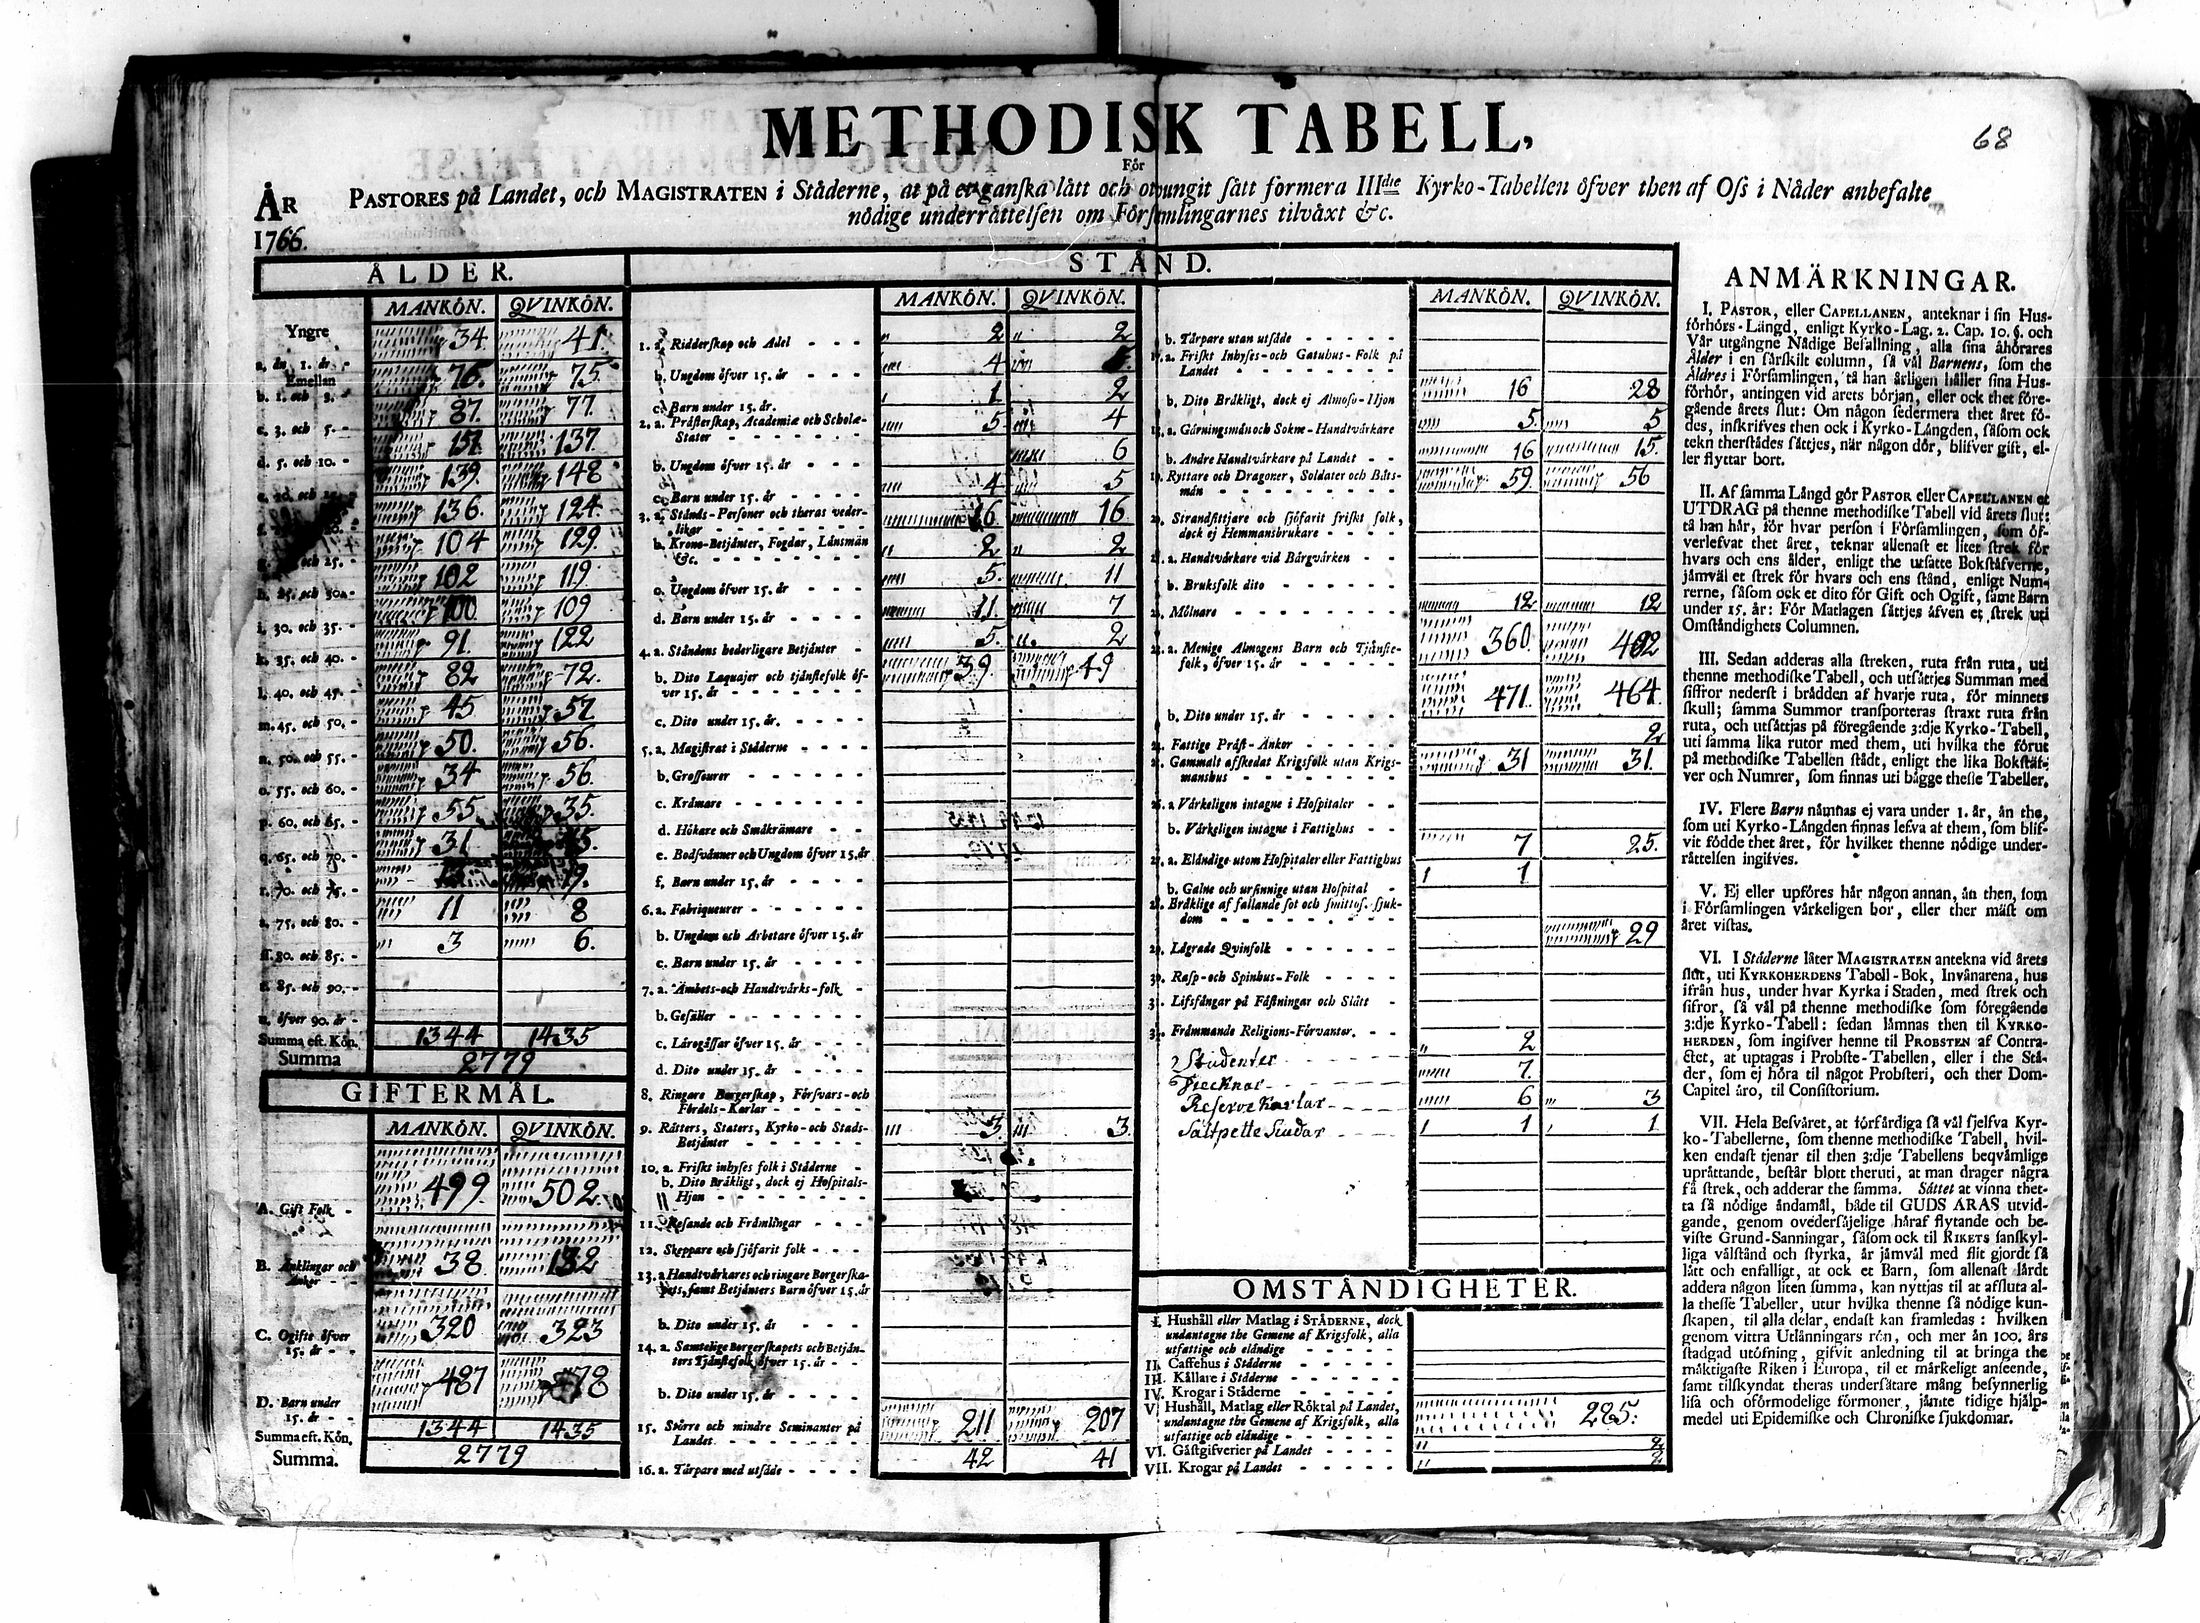 METHODISK TABELL,
68
För
ÅR
PASTORES på Landet, och MAGISTRATEN i Ståderne, at på et ganska lått och otvungit sått formera IIIdie Kyrko-Tabellen öfver then af Oss i Nåder anbefalte
nödige underråttelsen om Församlingarnes tilvåxt &c.
1766.
ÅLDER.
MANKÖN. QVINKÖN.
Yngre
a. än 1. år - 34 41
Emellan
b. 1. och 3. 76. 75.
c. 3. och 5. - 87. 77.
d. 5. och 10. - 151. 137.
e. 10. och 15. - 139. 148
136. 124
g. 25. - 104 129.
h. 25. och 30. - 102 119.
i. 30. och 35. - 100. 109
k. 35. och 40. - 91. 122
l. 40. och 45. - 82 72.
m. 45. och 50. - 45 57
n. 50. och 55. - 50. 56.
o. 55. och 60. - 34 56.
p. 60. och 65. - 55. 35.
q. 65. och 70. - 31
r. 70. och 75. - 19.
s. 75. och 80. - 11 8
ſſ. 80. och 85. - 3 6.
t. 85. och 90. -
u. öfver 90. år -
Summa eft. Kön. 1344 1435
Summa 2779
GIFTERMÅL.
MANKÖN. QVINKÖN.
A. Gift Folk - 499. 502.
B. Änklingar och
Änkor - - 38 132
C. Ogifte öfver
15. år - - 320 323
D. Barn under
15. år - - 487 478
Summa eft. Kön. 1344 1435
Summa. 2779
STÅND.
MANKÖN. QVINKÖN.
1. a. Ridderskap och Adel - - - 2 2
b. Ungdom öfver 15. år - - - - 4
c. Barn under 15. år. 1 2
2. a. Pråsterskap, Academiæ och Scholæ-
Stater - - - - - - 5 4
b. Ungdom öfver 15. år - - - - 6
c. Barn under 15. år - - - - 4 5
3. a. Stånds-Personer och theras veder-
likar - - - - - - - 16 16.
b. Krono-Betjånter, Fogdar, Lånsmån
&c. - - - - - - - 2 2
c. Ungdom öfver 15. år - - - - 5. 11
d. Barn under 15. år - - - - 11. 7
4. a. Ståndens hederligare Betjånter - 5. 2
b. Dito Laquajer och tjånstefolk öf-
ver 15. år - - - - - - 39. 49
c. Dito under 15. år. - - - -
5. a. Magistrat i Ståderne - - - -
b. Grosseurer - - - - - -
c. Kråmare - - - - - - -
d. Hökare och Småkråmare - -
e. Bodsvånner och Ungdom öfver 15. år
f. Barn under 15. år - - - -
6. a. Fabriqueurer - - - - - -
b. Ungdom och Arbetare öfver 15. år
c. Barn under 15. år - - - -
7. a. Åmbets-och Handtvårks-folk -
b. Gesåller - - - - - - -
c. Lårogåssar öfver 15. år - - -
d. Dito under 15. år - - - -
8. Ringare Borgerskap, Försvars-och
Fördels-Karlar - - - - - -
9. Råtters, Staters, Kyrko-och Stads-
Betjånter - - - - - - 3. 3.
10. a. Friskt inhyses folk i Ståderne -
b. Dito Bråkligt, dock ej Hospitals-
Hjon - - - - - - - -
11. Resande och Fråmlingar - - -
12. Skeppare och sjöfarit folk - - -
13. a. Handtvårkares och ringare Borgerska-
pets, samt Betjånters Barn öfver 15. år
b. Dito under 15. år - - - -
14. a. Samtelige Borgerskapets och Betjån-
ters Tjånstefolk öfver 15. år - -
b. Dito under 15. år - - - -
15. Större och mindre Seminanter på
Landet - - - - - - - 211 207
16. a. Tårpare med utsåde - - - - 42 41
MANKÖN. QVINKÖN.
b. Tårpare utan utsåde - - - -
17. a. Friskt Inhyses-och Gatuhus-Folk på
Landet - - - - - - - -
b. Dito Bråkligt, dock ej Almoso-Hjon 16 28
18. a. Gårningsmån och Sokne-Handtvårkare 5. 5
b. Andre Handtvårkare på Landet - - 16 15.
19. Ryttare och Dragoner, Soldater och Båts-
mån - - - - - - - - - 59. 56
20. Strandsittjare och sjöfarit friskt folk,
dock ej Hemmansbrukare - - - -
21. a. Handtvårkare vid Bårgvårken - -
b. Bruksfolk dito - - - - - -
22. Mölnare - - - - - - - - 12 12
23. a. Menige Almogens Barn och Tjånste-
folk, öfver 15. år - - - - - 360. 402
b. Dito under 15. år - - - - - 471. 464.
24. Fattige Pråst-Ånkor - - - - - 2
25. Gammalt afskedat Krigsfolk utan Krigs-
manshus - - - - - - - - 31 31.
26. a. Vårkeligen intagne i Hospitaler - -
b. Vårkeligen intagne i Fattighus - -
27. a. Elåndige utom Hospitaler eller Fattighus 7 25.
b. Galne och ursinnige utan Hospital - 1
28. Bråklige af fallande sot och smittos. sjuk-
dom - - - - - - - - -
29. Lågrade Qvinfolk - - - - - - 29
30. Rasp-och Spinhus-Folk - - - -
31. Lifsfångar på Fåstningar och Slått -
32. Fråmmande Religions-Förvanter. - -
Studenter 2
7.
Reserve Karlar 6 3
Saltpette Siudar 1 1
OMSTÅNDIGHETER.
I. Hushåll eller Matlag i STÅDERNE, dock
undantagne the Gemene af Krigsfolk, alla
utfattige och elåndige - - - - -
II. Caffehus i Ståderne - - - - -
III. Kållare i Ståderne - - - - -
IV. Krogar i Ståderne - - - - -
V. Hushåll, Matlag eller Röktal på Landet,
undantagne the Gemene af Krigsfolk, alla
utfattige och elåndige - - - - - 285.
VI. Gåstgifverier på Landet - - - - 2
VII. Krogar på Landet - - - - - 2
ANMÄRKNINGAR.
I. PASTOR, eller CAPELLANEN, anteknar i sin Hus-
förhörs-Långd, enligt Kyrko-Lag. 2. Cap. 10. §. och
Vår utgångne Nådige Befallning, alla sina åhörares
Ålder i en sårskilt column, så vål Barnens, som the
Åldres i Församlingen, tå han årligen håller sina Hus-
förhör, antingen vid årets början, eller ock thet före-
gående årets slut: Om någon sedermera thet året fö-
des, inskrifves then ock i Kyrko-Långden, såsom ock
tekn therstådes såttjes, når någon dör, blifver gift, el-
ler flyttar bort.
II. Af samma Långd gör PASTOR eller CAPELLANEN et
UTDRAG på thenne methodiske Tabell vid årets slut:
tå han hår, för hvar person i Församlingen, som öf-
verlefvat thet året, teknar allenast et litet strek för
hvars och ens ålder, enligt the utsatte Bokståfverne,
jåmvål et strek för hvars och ens stånd, enligt Num-
rerne, såsom ock et dito för Gift och Ogift, samt Barn
under 15. år: För Matlagen såttjes åfven et strek uti
Omståndighets Columnen.
III. Sedan adderas alla streken, ruta från ruta, uti
thenne methodiske Tabell, och utsåttjes Summan med
siffror nederst i brådden af hvarje ruta, för minnets
skull; samma Summor transporteras straxt ruta från
ruta, och utsåttjas på föregående 3:dje Kyrko-Tabell,
uti samma lika rutor med them, uti hvilka the förut
på methodiske Tabellen stådt, enligt the lika Bokståf-
ver och Numrer, som finnas uti bågge thesse Tabeller.
IV. Flere Barn nåmnas ej vara under 1. år, ån the,
som uti Kyrko-Långden finnas lefva at them, som blif-
vit födde thet året, för hvilket thenne nödige under-
råttelsen ingifves.
V. Ej eller upföres hår någon annan, ån then, som
i Församlingen vårkeligen bor, eller ther måst om
året vistas.
VI. I Ståderne låter MAGISTRATEN antekna vid årets
slut, uti KYRKOHERDENS Tabell-Bok, Invånarena, hus
ifrån hus, under hvar Kyrka i Staden, med strek och
sifror, så vål på thenne methodiske som föregående
3:dje Kyrko-Tabell: sedan låmnas then til KYRKO-
HERDEN, som ingifver henne til PROBSTEN af Contra-
ctet, at uptagas i Probste-Tabellen, eller i the Stå-
der, som ej höra til något Probsteri, och ther Dom-
Capitel åro, til Consistorium.
VII. Hela Besvåret, at förfårdiga så vål sjelfva Kyr-
ko-Tabellerne, som thenne methodiske Tabell, hvil-
ken endast tjenar til then 3:dje Tabellens beqvåmlige
upråttande, består blott theruti, at man drager några
få strek, och adderar the samma. Såttet at vinna thet-
ta så nödige åndamål, både til GUDS ÅRAS utvid-
gande, genom ovedersåjelige håraf flytande och be-
viste Grund-Sanningar, såsom ock til RIKETS sanskyl-
liga vålstånd och styrka, år jåmvål med flit gjordt så
lått och enfalligt, at ock et Barn, som allenast lårdt
addera någon liten summa, kan nyttjas til at afsluta al-
la thesse Tabeller, utur hvilka thenne så nödige kun-
skapen, til alla delar, endast kan framledas: hvilken
genom vittra Utlånningars rön, och mer ån 100. års
stadgad utöfning, gifvit anledning til at bringa the
måktigaste Riken i Europa, til et mårkeligt anseende,
samt tilskyndat theras undersåtare mång besynnerlig
lisa och oförmodelige förmoner, jåmte tidige hjålp-
medel uti Epidemiske och Chroniske sjukdomar.